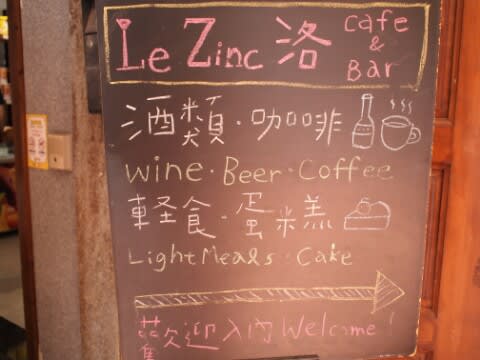 Le Zinc 洛 Cafe & Bar
酒類·咖啡
Wine·Beer·Coffee
軽食·蛋糕
Light Meals·Cake
歡迎入內 Welcome!